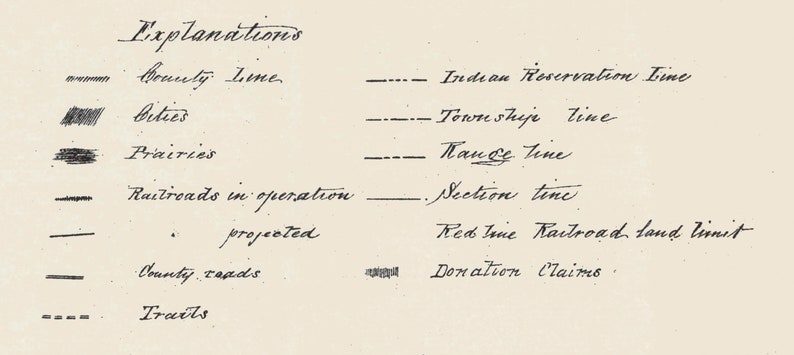 Explanations
County Line
Cities
Prairies
Railroads in operation
" projected
County roads
Trails
Indian Reservation Line
Township line
Range line
Section line
Red line Railroad land limit
Donation Claims